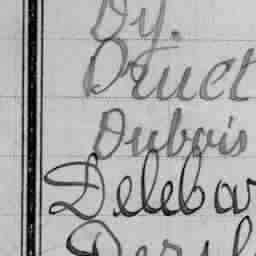 Dy.
Druet
Dubois
Delebar